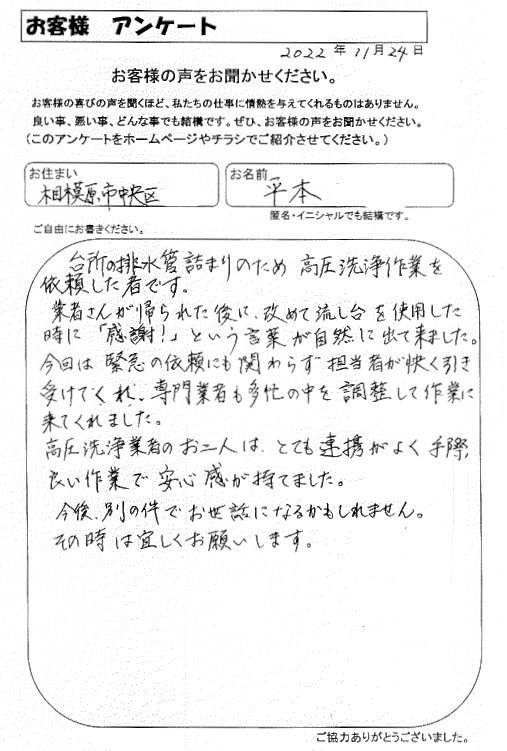 お客様 アンケート
2022 年 11 月 24 日
お客様の声をお聞かせください。
お客様の喜びの声を聞くほど、私たちの仕事に情熱を与えてくれるものはありません。
良い事、悪い事、どんな事でも結構です。ぜひ、お客様の声をお聞かせください。
(このアンケートをホームページやチラシでご紹介させてください。)
お住まい
相模原市中央区
お名前
平本
匿名・イニシャルでも結構です。
ご自由にお書きください。
台所の排水管詰まりのため 高圧洗浄作業を
依頼した者です。
業者さんが帰られた後に、改めて流し台を使用した
時に「感謝！」という言葉が自然に出て来ました。
今回は 緊急の依頼にも関わらず 担当者が快く引き
受けてくれ、専門業者も多忙の中を調整して作業に
来てくれました。
高圧洗浄業者のお二人は、とても連携がよく手際
良い作業で 安心感が持てました。
今後、別の件でお世話になるかもしれません。
その時は宜しくお願いします。
ご協力ありがとうございました。